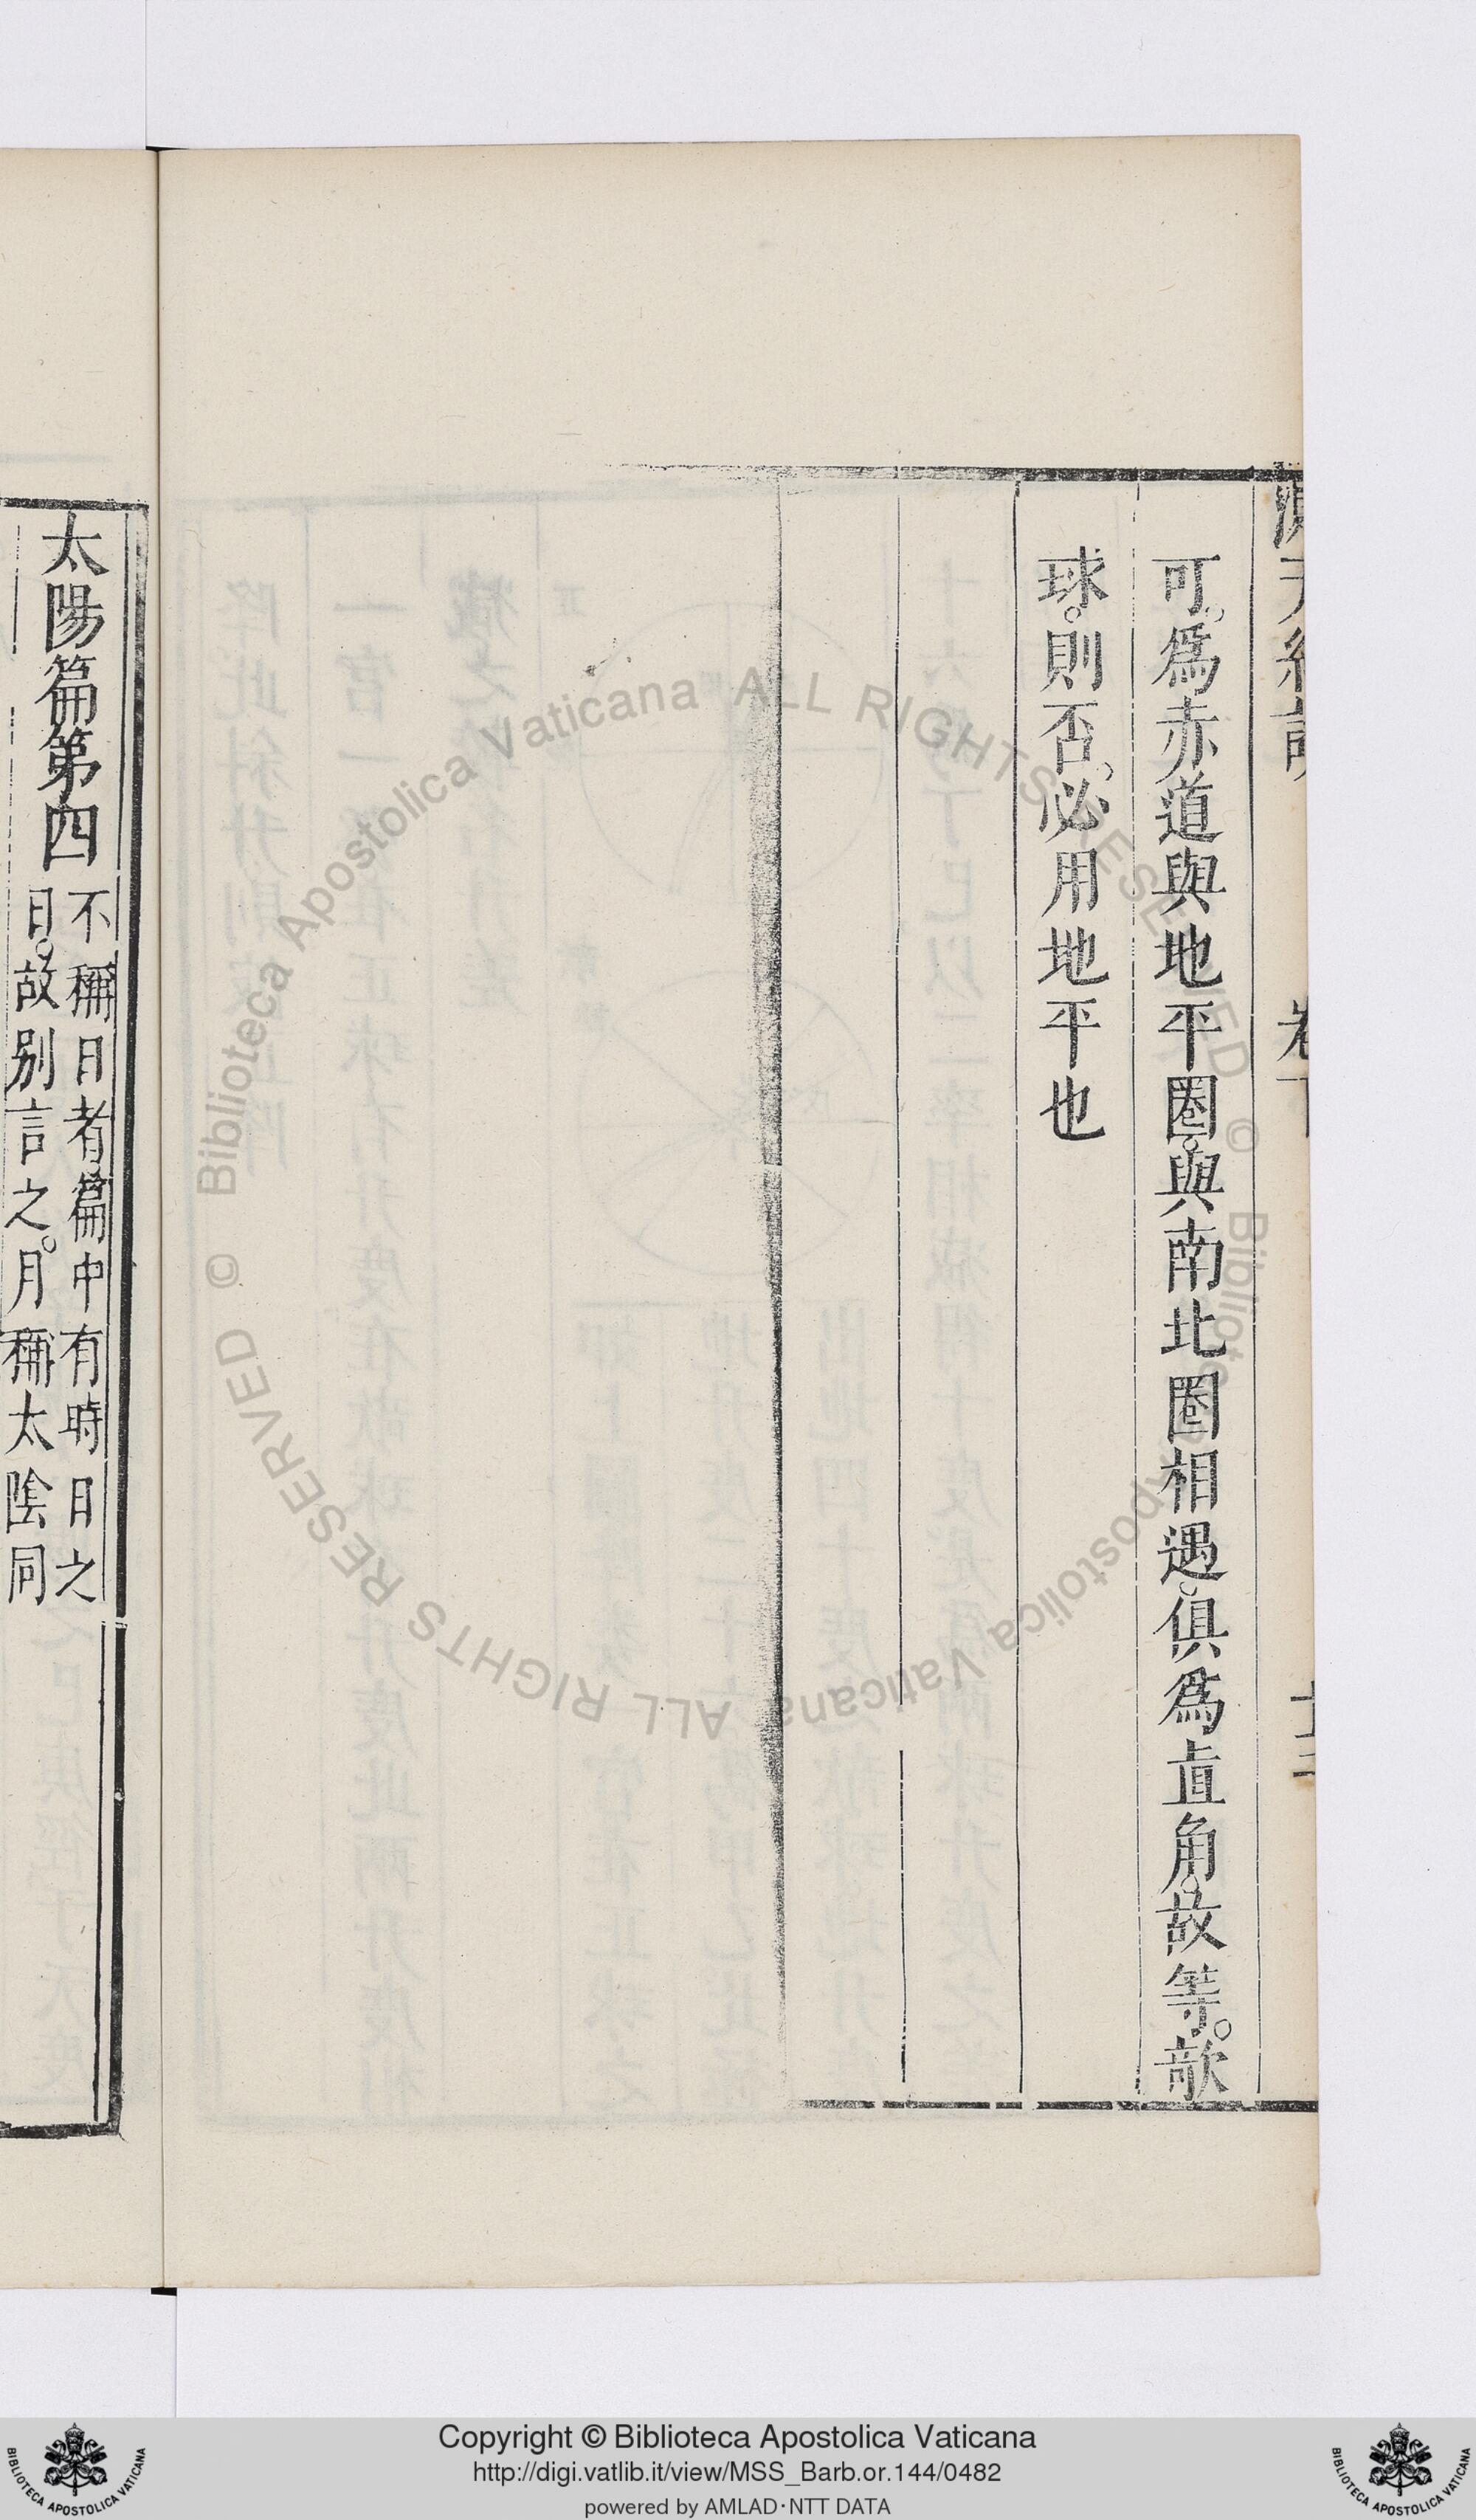 可。爲赤道與地平圈。與南北圈相遇。俱爲直角。故等。欹
球。則否。必用地平也
太陽篇第四
不稱日者篇中有時日之
日。故別言之。月稱太陰同
© Biblioteca Apostolica Vaticana ALL RIGHTS RESERVED © Biblioteca Apostolica Vaticana ALL RIGHTS RESERVED
Copyright © Biblioteca Apostolica Vaticana
http://digi.vatlib.it/view/MSS_Barb.or.144/0482
powered by AMLAD·NTT DATA
BIBLIOTECA APOSTOLICA VATICANA
BIBLIOTECA APOSTOLICA VATICANA